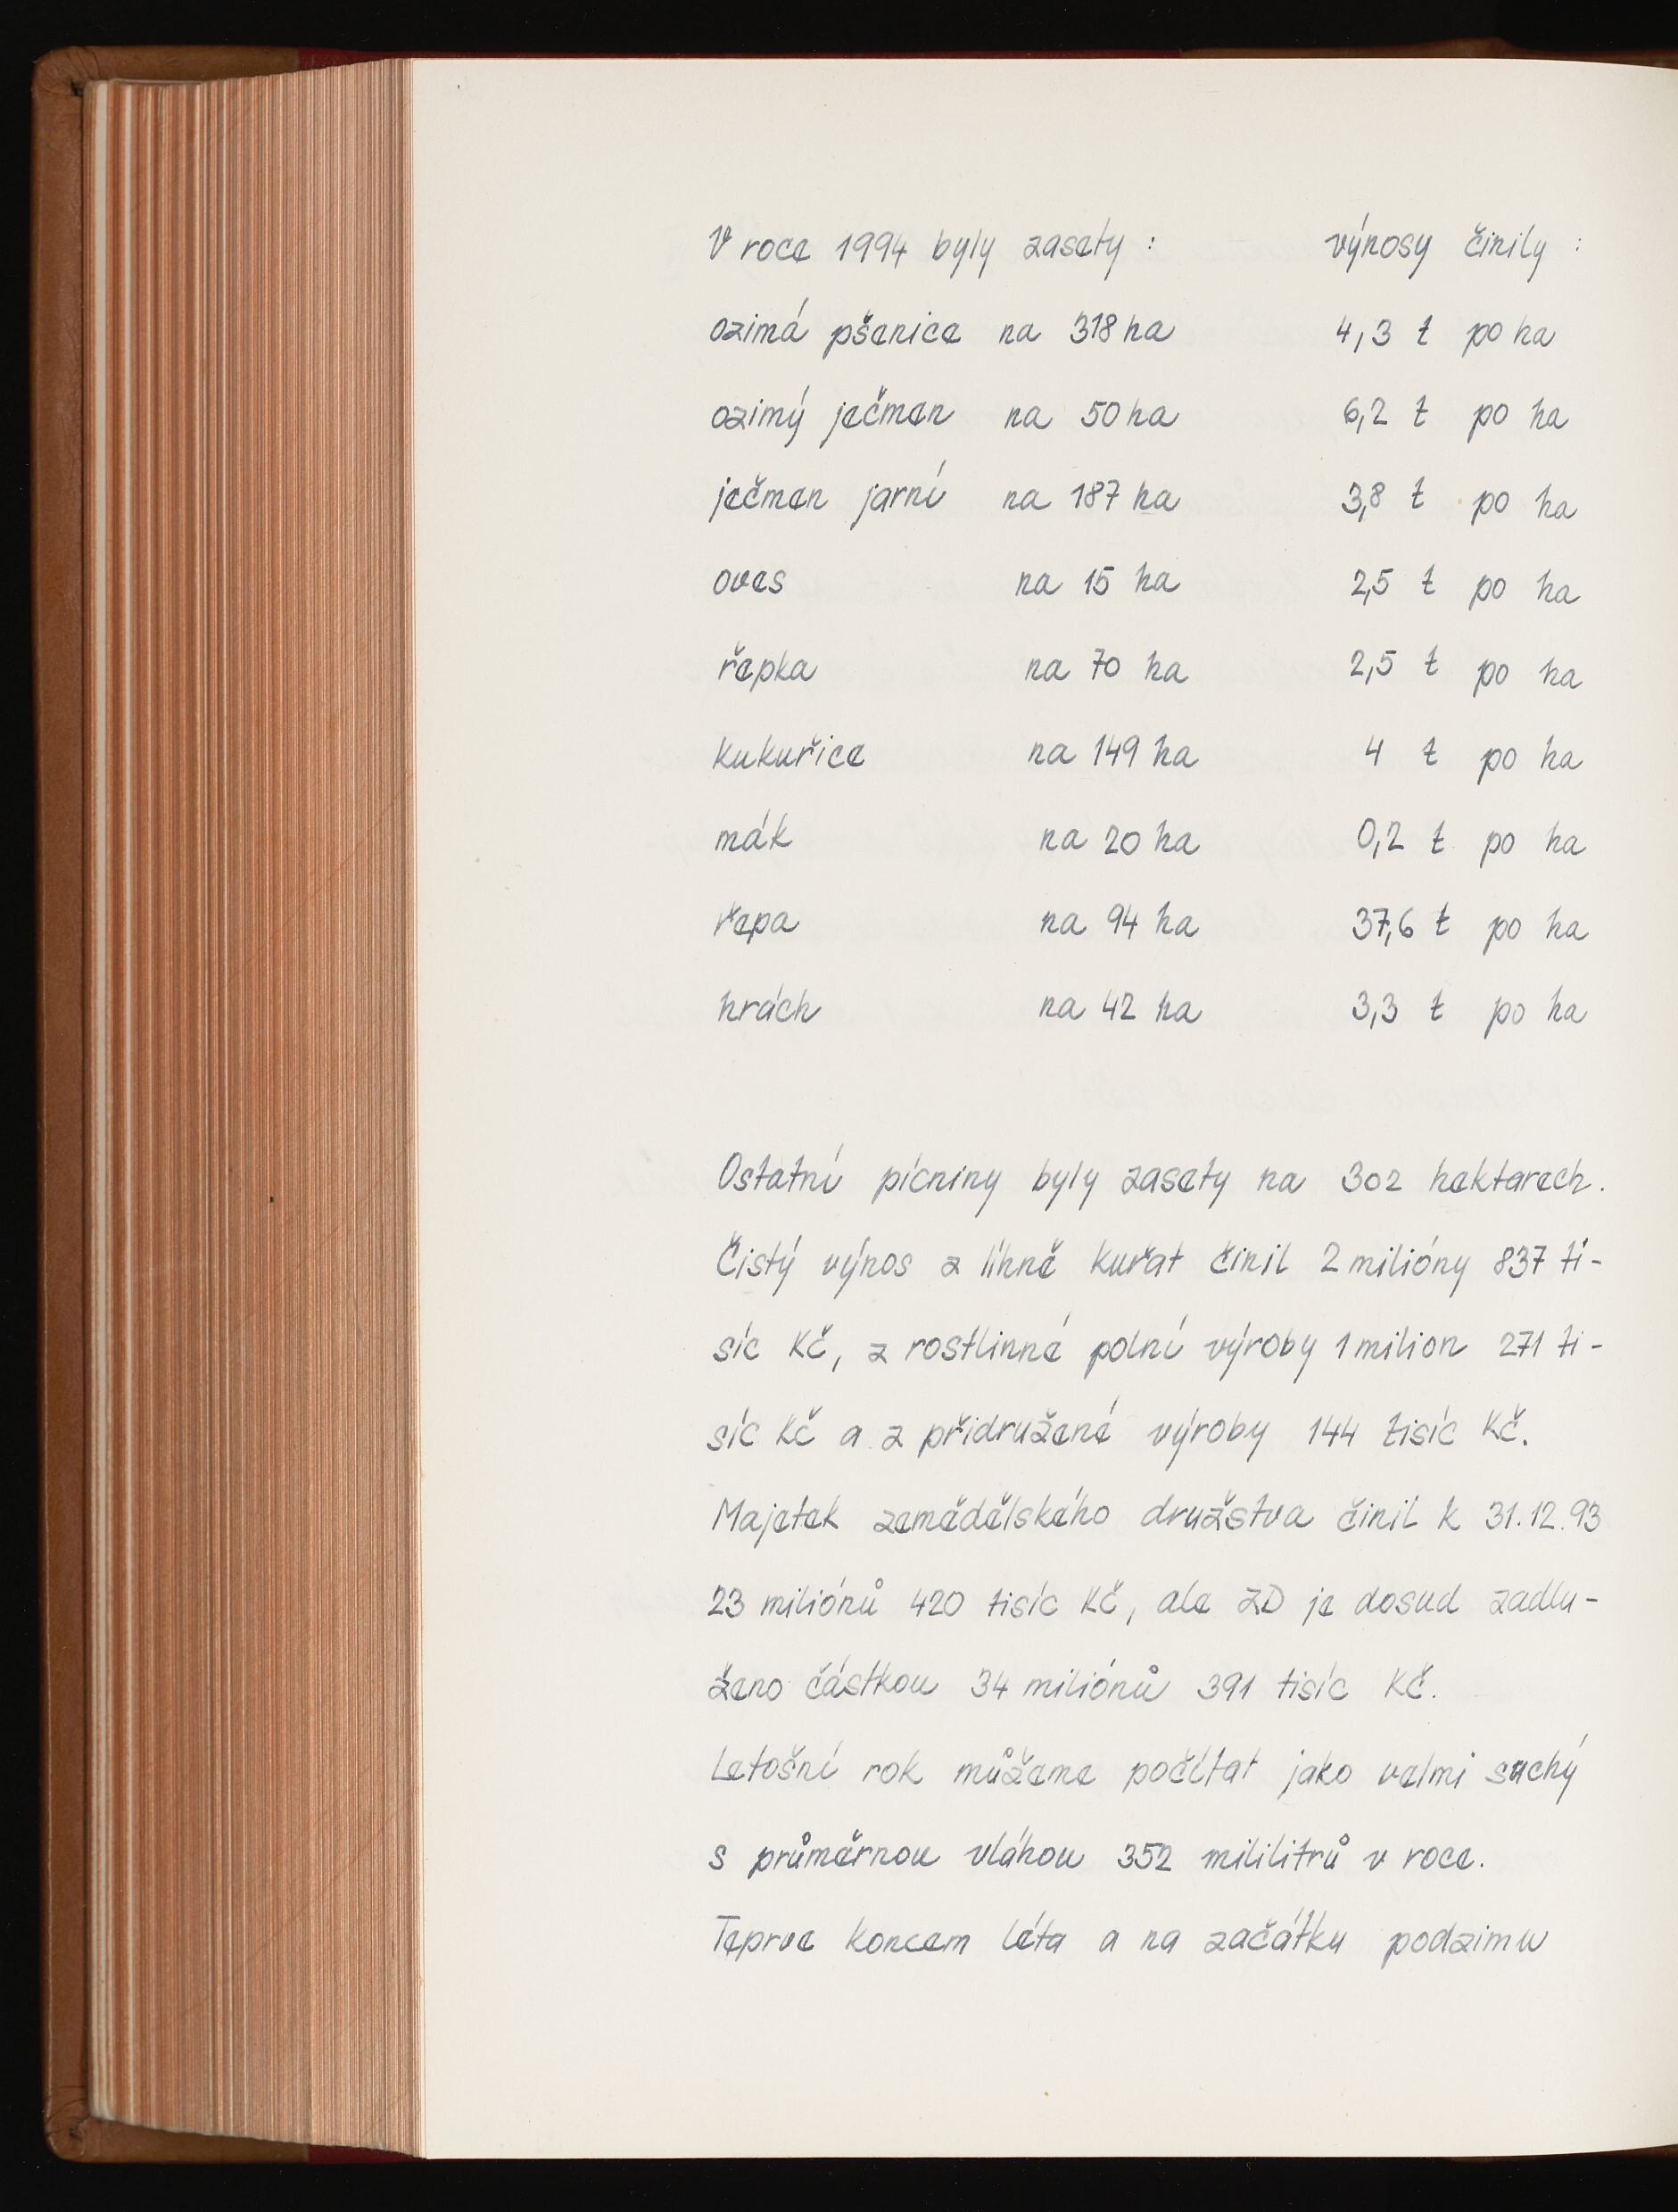 V roce 1994 byly zasety : výnosy činily :
ozimá pšenice na 318 ha 4,3 t po ha
ozimý ječmen na 50 ha 6,2 t po ha
ječmen jarní na 187 ha 3,8 t po ha
oves na 15 ha 2,5 t po ha
řepka na 70 ha 2,5 t po ha
kukuřice na 149 ha 4 t po ha
mák na 20 ha 0,2 t po ha
řepa na 94 ha 37,6 t po ha
hrách na 42 ha 3,3 t po ha
Ostatní pícniny byly zasety na 302 hektarech.
Čistý výnos z líhně kuřat činil 2 milióny 837 ti-
síc Kč, z rostlinné polní výroby 1 milion 271 ti-
síc Kč a z přidružené výroby 144 tisíc Kč.
Majetek zemědělského družstva činil k 31.12.93
23 miliónů 420 tisíc Kč, ale ZD je dosud zadlu-
ženo částkou 34 miliónů 391 tisíc Kč.
Letošní rok můžeme počítat jako velmi suchý
s průměrnou vláhou 352 mililitrů v roce.
Teprve koncem léta a na začátku podzimu